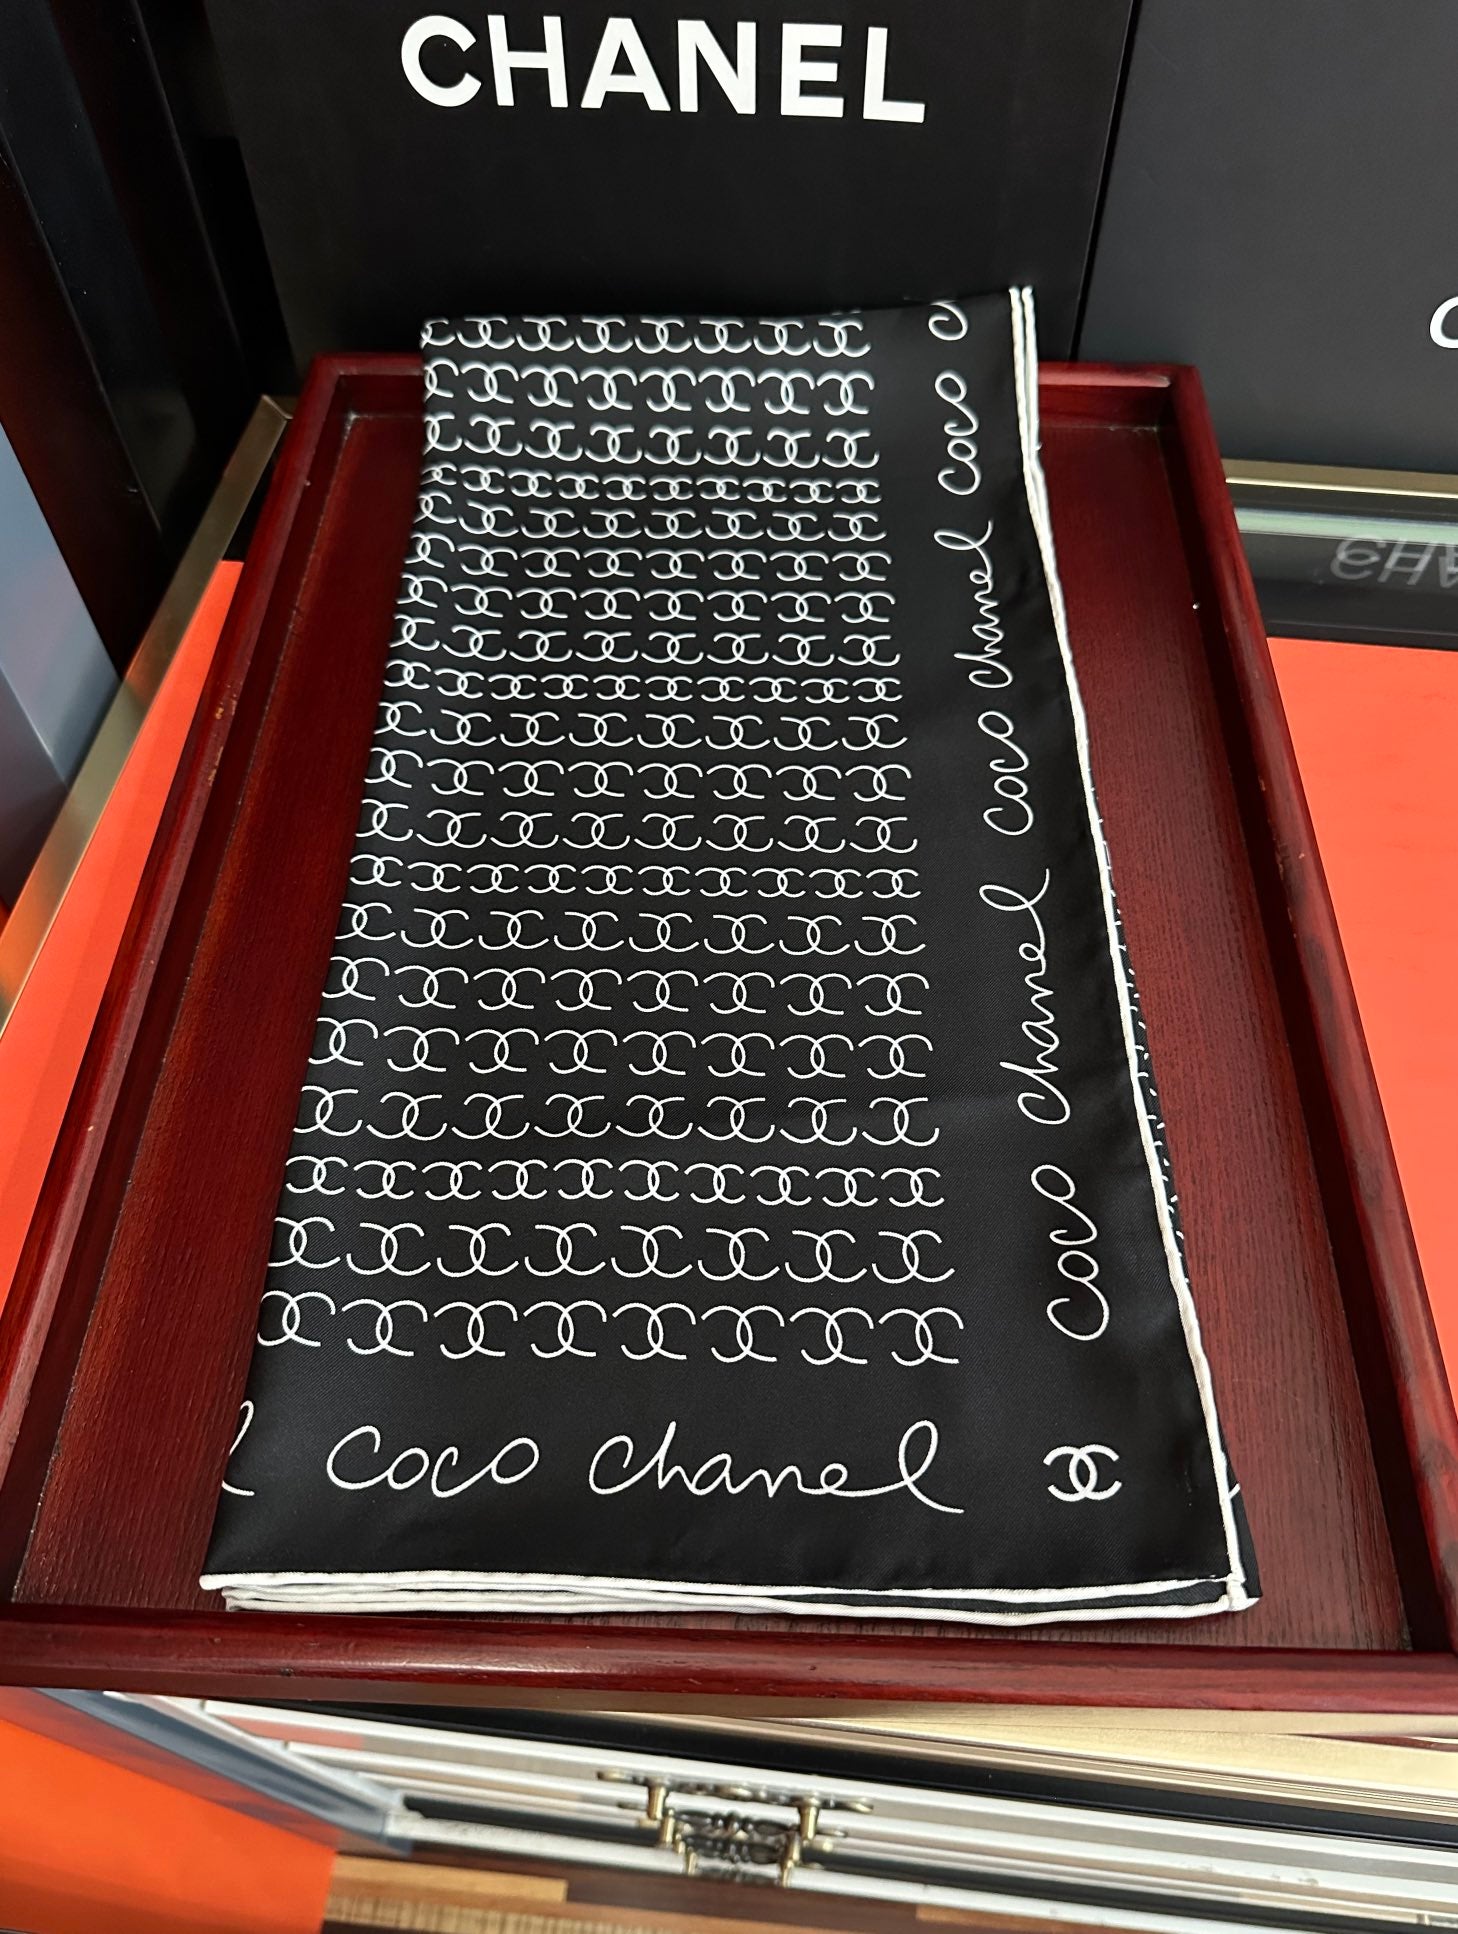 CHANEL
coco
chanel
coco
chanel
coco
coco chanel